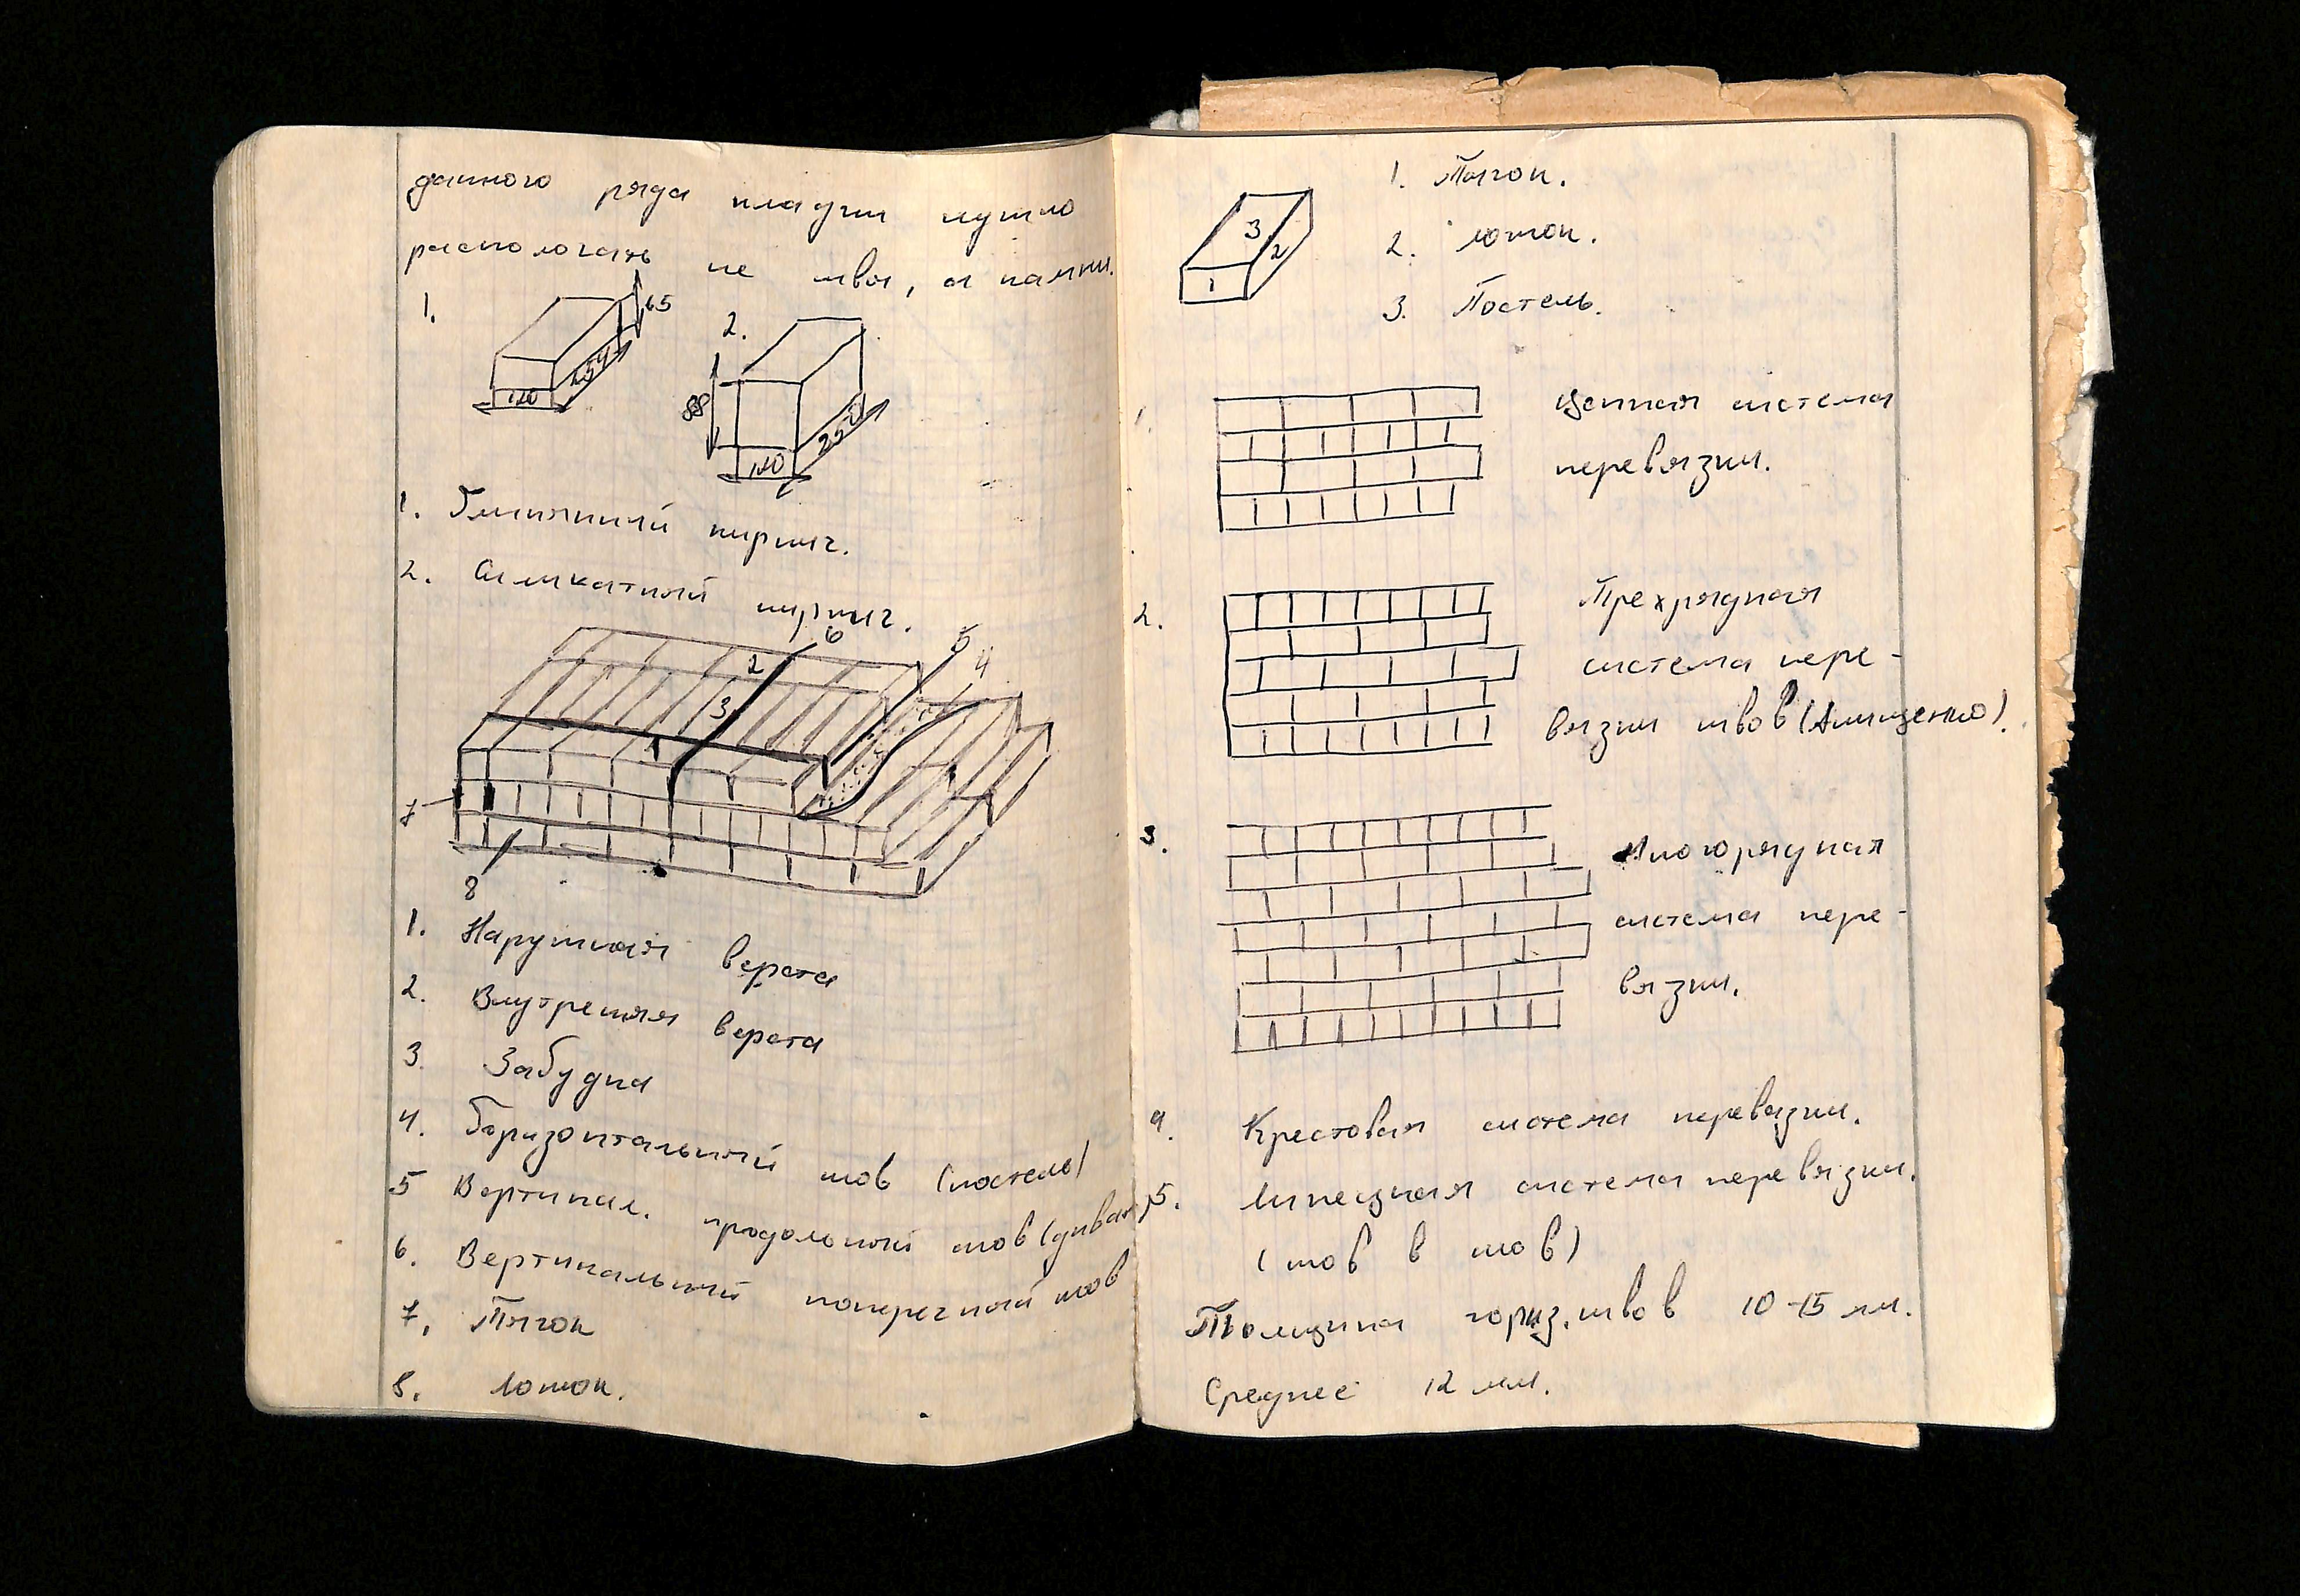 данного ряда кладки нужно
распологать не швы, а камни.
1.
65
254
120
2.
88
250
120
1. Глиняный кирпич.
2. Силикатный кирпич.
6
5
4
2
3
1
7
8
1. Наружная верста
2. Внутреняя верста
3. Забудка
4. Горизонтальный шов (постель)
5 Вертикал. продольный шов
6. Вертикальный поперечный шов
7. Тычок
8. Ложок.
1. Тычок.
2. Ложок.
3. Постель.
3
2
1
1. Цепная система
перевязки.
2. Трехрядная
система пере-
вязки швов (Анищенко).
3. Многорядная
система пере-
вязки.
4. Крестовая система перевязки.
5. система перевязки.
(шов в шов)
Толщина гориз. швов 10-15 мм.
Среднее 12 мм.